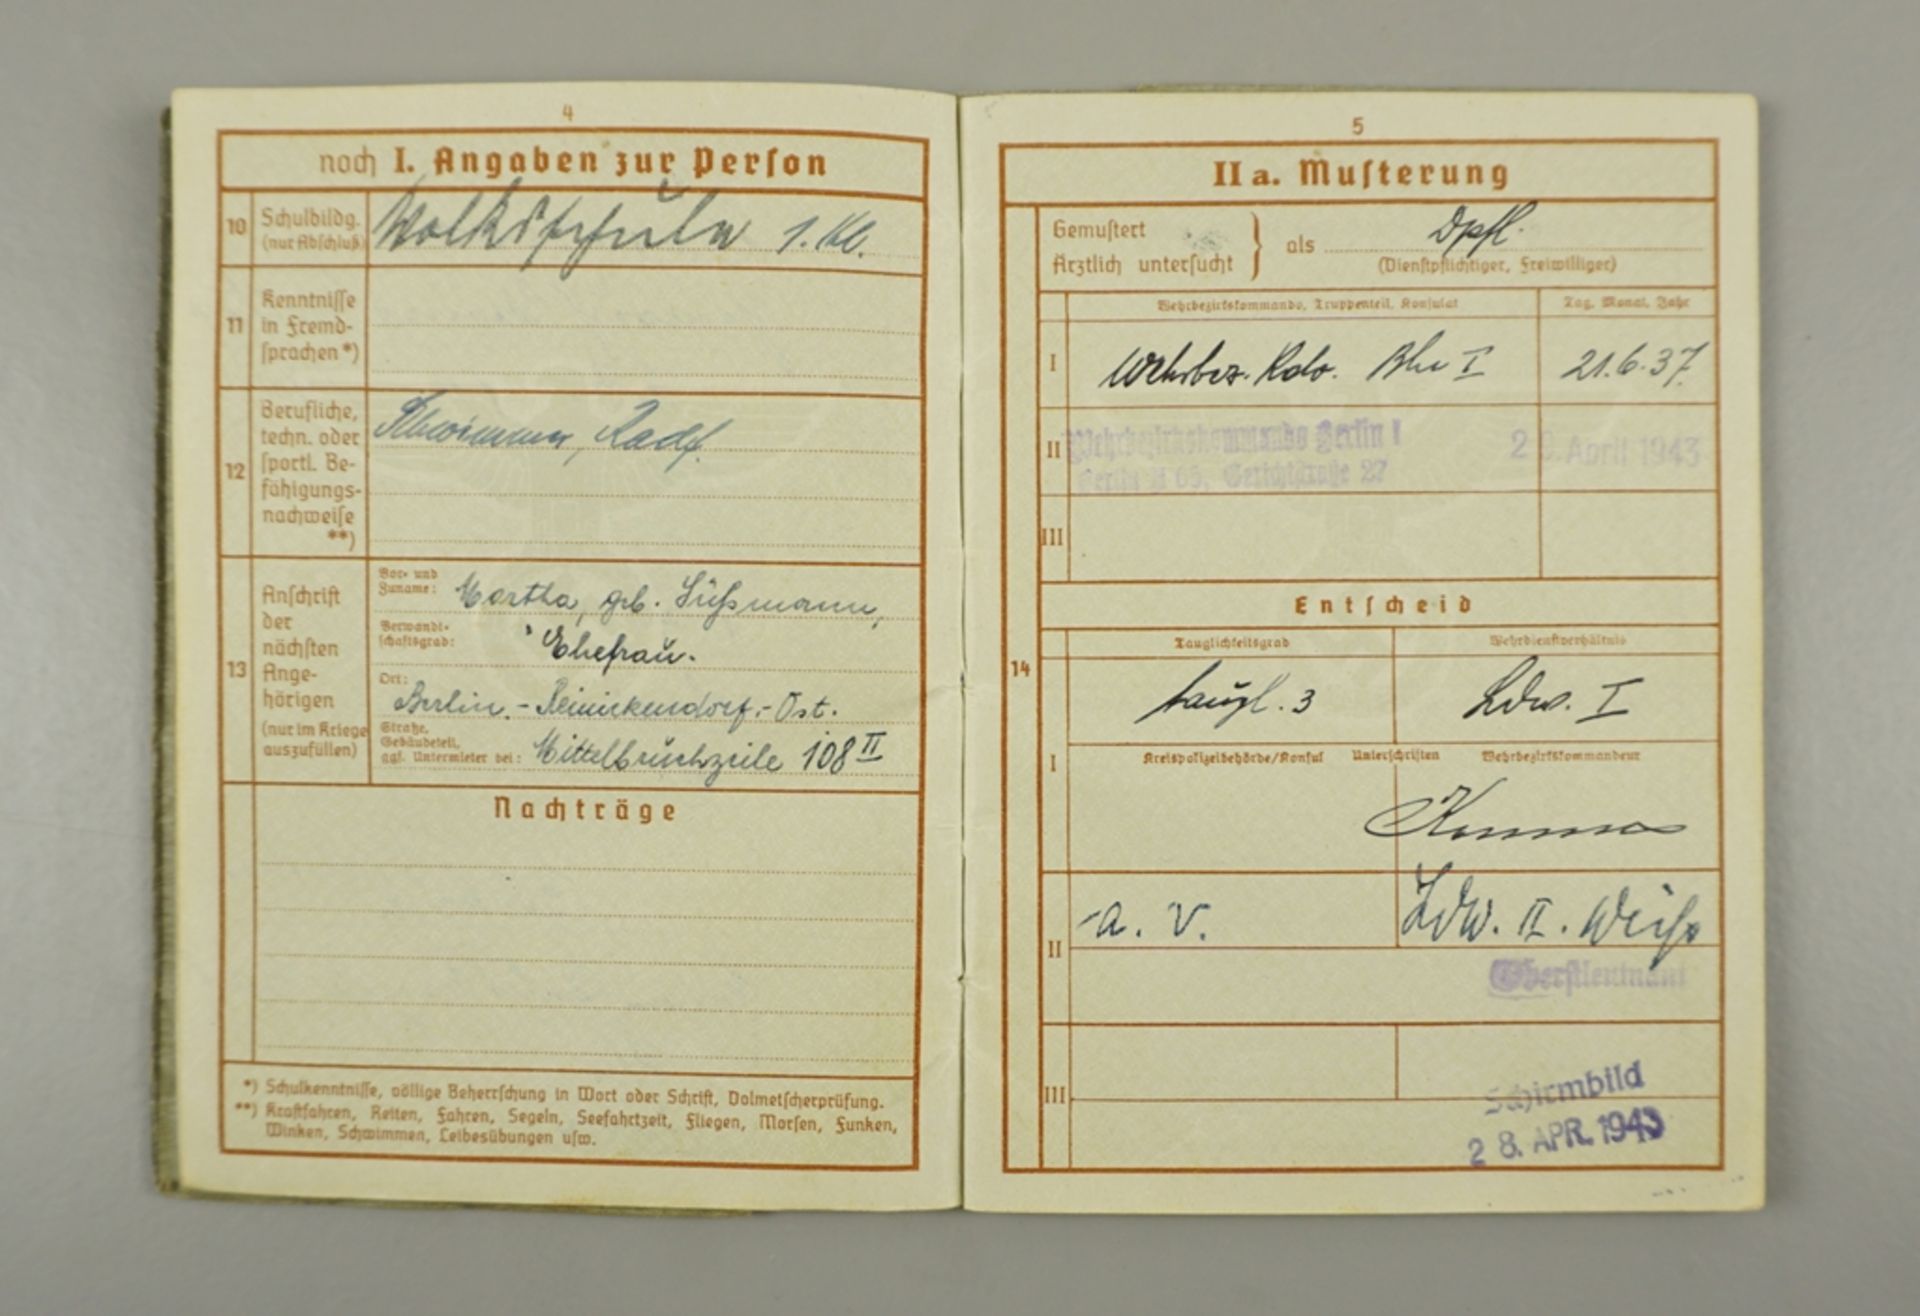 4
noch I. Angaben zur Person
10 Schulbildg. (nur Abschluß)
Volksschule 1. Kl.
11 Kenntnisse in Fremd-
sprachen *)
12 Berufliche,
techn. oder
sportl. Be-
fähigungs-
nachweise
**)
Schwimmen, Radf.
13 Anschrift
der
nächsten
Ange-
hörigen
(nur im Kriege
auszufüllen)
Vor- und
Zuname: Martha, geb. Süßmann,
Verwandt-
schaftsgrad: Ehefrau.
Ort: Berlin.-Reinickendorf.-Ost.
Straße,
Gebäudeteil,
ggf. Untermieter bei: Mittelbruchzeile 108 II
Nachträge
*) Schulkenntnisse, völlige Beherrschung in Wort oder Schrift, Dolmetscherprüfung.
**) Kraftfahren, Reiten, Fahren, Segeln, Seefahrtzeit, Fliegen, Morsen, Funken,
Winken, Schwimmen, Leibesübungen usw.
5
II a. Musterung
Gemustert
Ärztlich untersucht } als Dpfl.
(Dienstpflichtiger, Freiwilliger)
Wehrbezirkskommando, Truppenteil, Konsulat
Tag, Monat, Jahr
I Wehrbez. Kdo. Bln I 21.6.37.
II Wehrbezirkskommando Berlin I
Berlin N 65, Gerichtstraße 27
April 1943
III
Entscheid
14
Tauglichkeitsgrad
Wehrdienstverhältnis
taugl. 3
Ldw. I
I Kreispolizeibehörde/Konsul Unterschriften Wehrbezirkskommandeur
II a. v.
Ldw. II.
Oberstleutnant
III
Schirmbild
28. APR. 1943